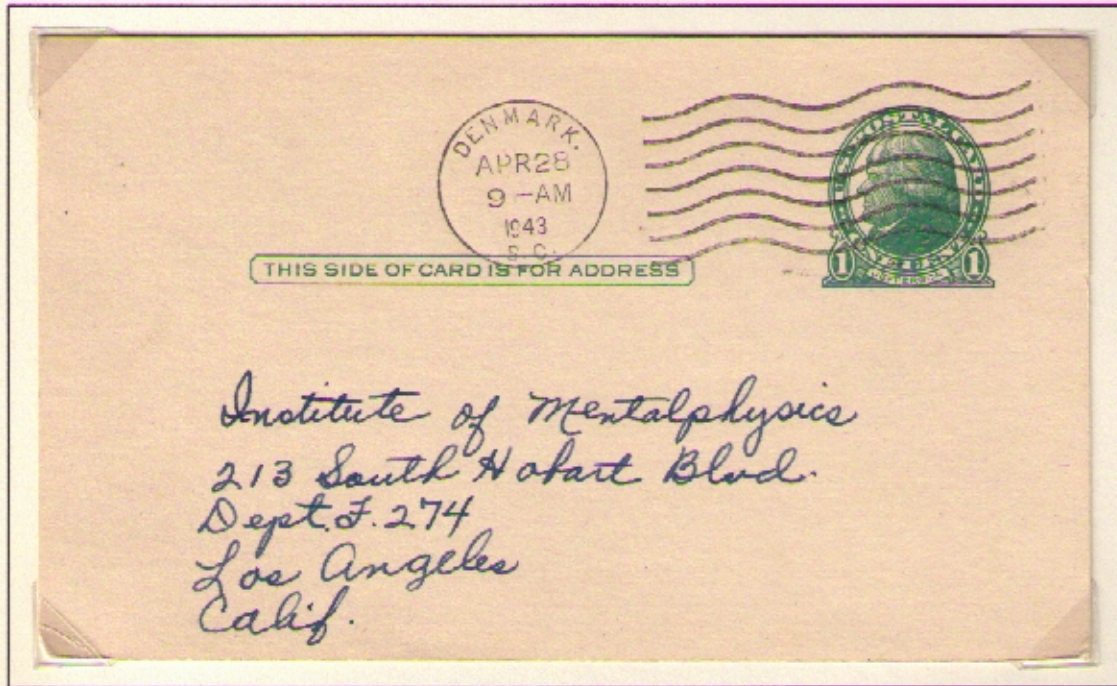 DENMARK.
APR 28
9-AM
1943
S.C.
THIS SIDE OF CARD IS FOR ADDRESS
1 1
Institute of Mentalphysics
213 South Hobart Blvd.
Dept. F. 274
Los Angeles
Calif.